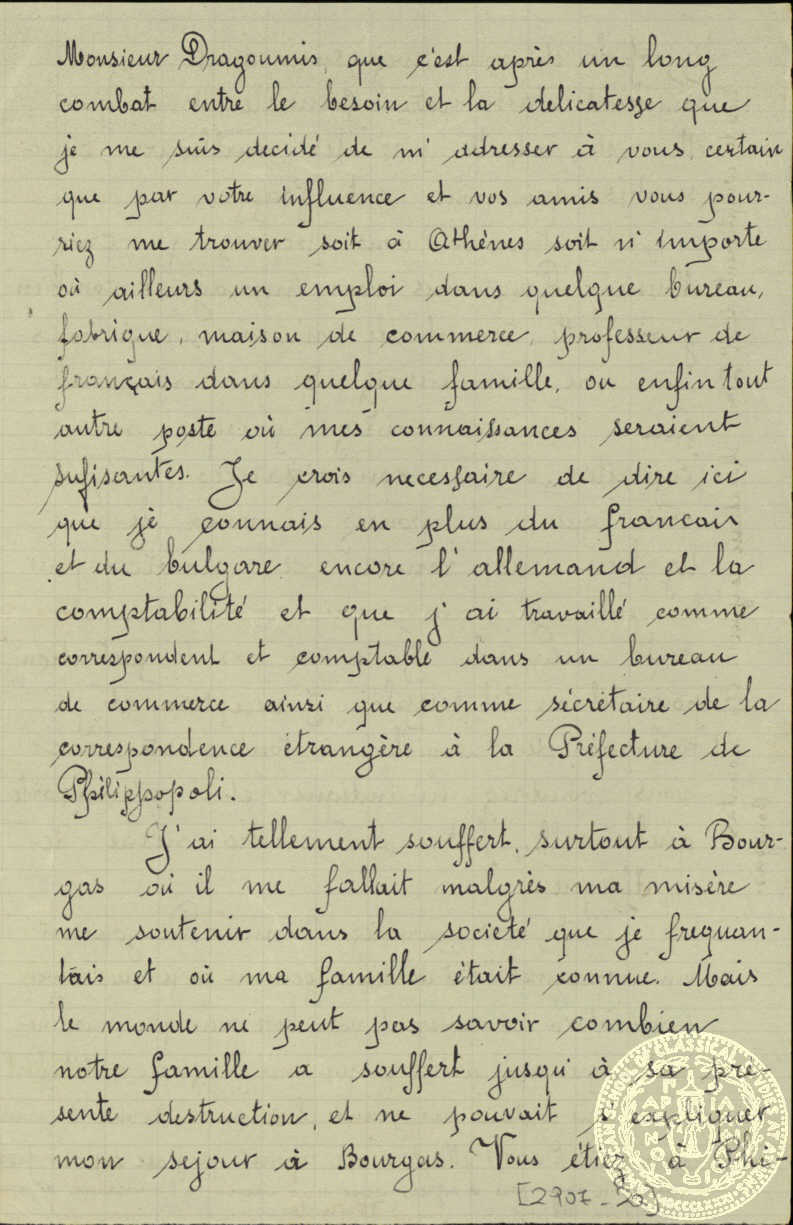 Monsieur Dragoumis, que c'est après un long
combat entre le besoin et la delicatesse que
je me suis decidé de m'adresser à vous, certain
que par votre influence et vos amis vous pour-
riez me trouver soit à Athènes soit n'importe
où ailleurs un emploi dans quelque bureau,
fabrique, maison de commerce, professeur de
français dans quelque famille, ou enfin tout
autre poste où mes connaissances seraient
sufisantes. Je crois necessaire de dire ici
que je connais en plus du francais
et du bulgare encore l'allemand et la
comptabilité et que j'ai travaillé comme
correspondent et comptable dans un bureau
de commerce ainsi que comme sécrétaire de la
correspondence étrangère à la Préfecture de
Philippopoli.
J'ai tellement souffert, surtout à Bour-
gas où il me fallait malgrès ma misère
me soutenir dans la societé que je frequan-
tais et où ma famille était connue. Mais
le monde ne peut pas savoir combien
notre famille a souffert jusqu'à sa pré-
sente destruction, et ne pouvait s'expliquer
mon sejour à Bourgas. Vous étiez à Phi-